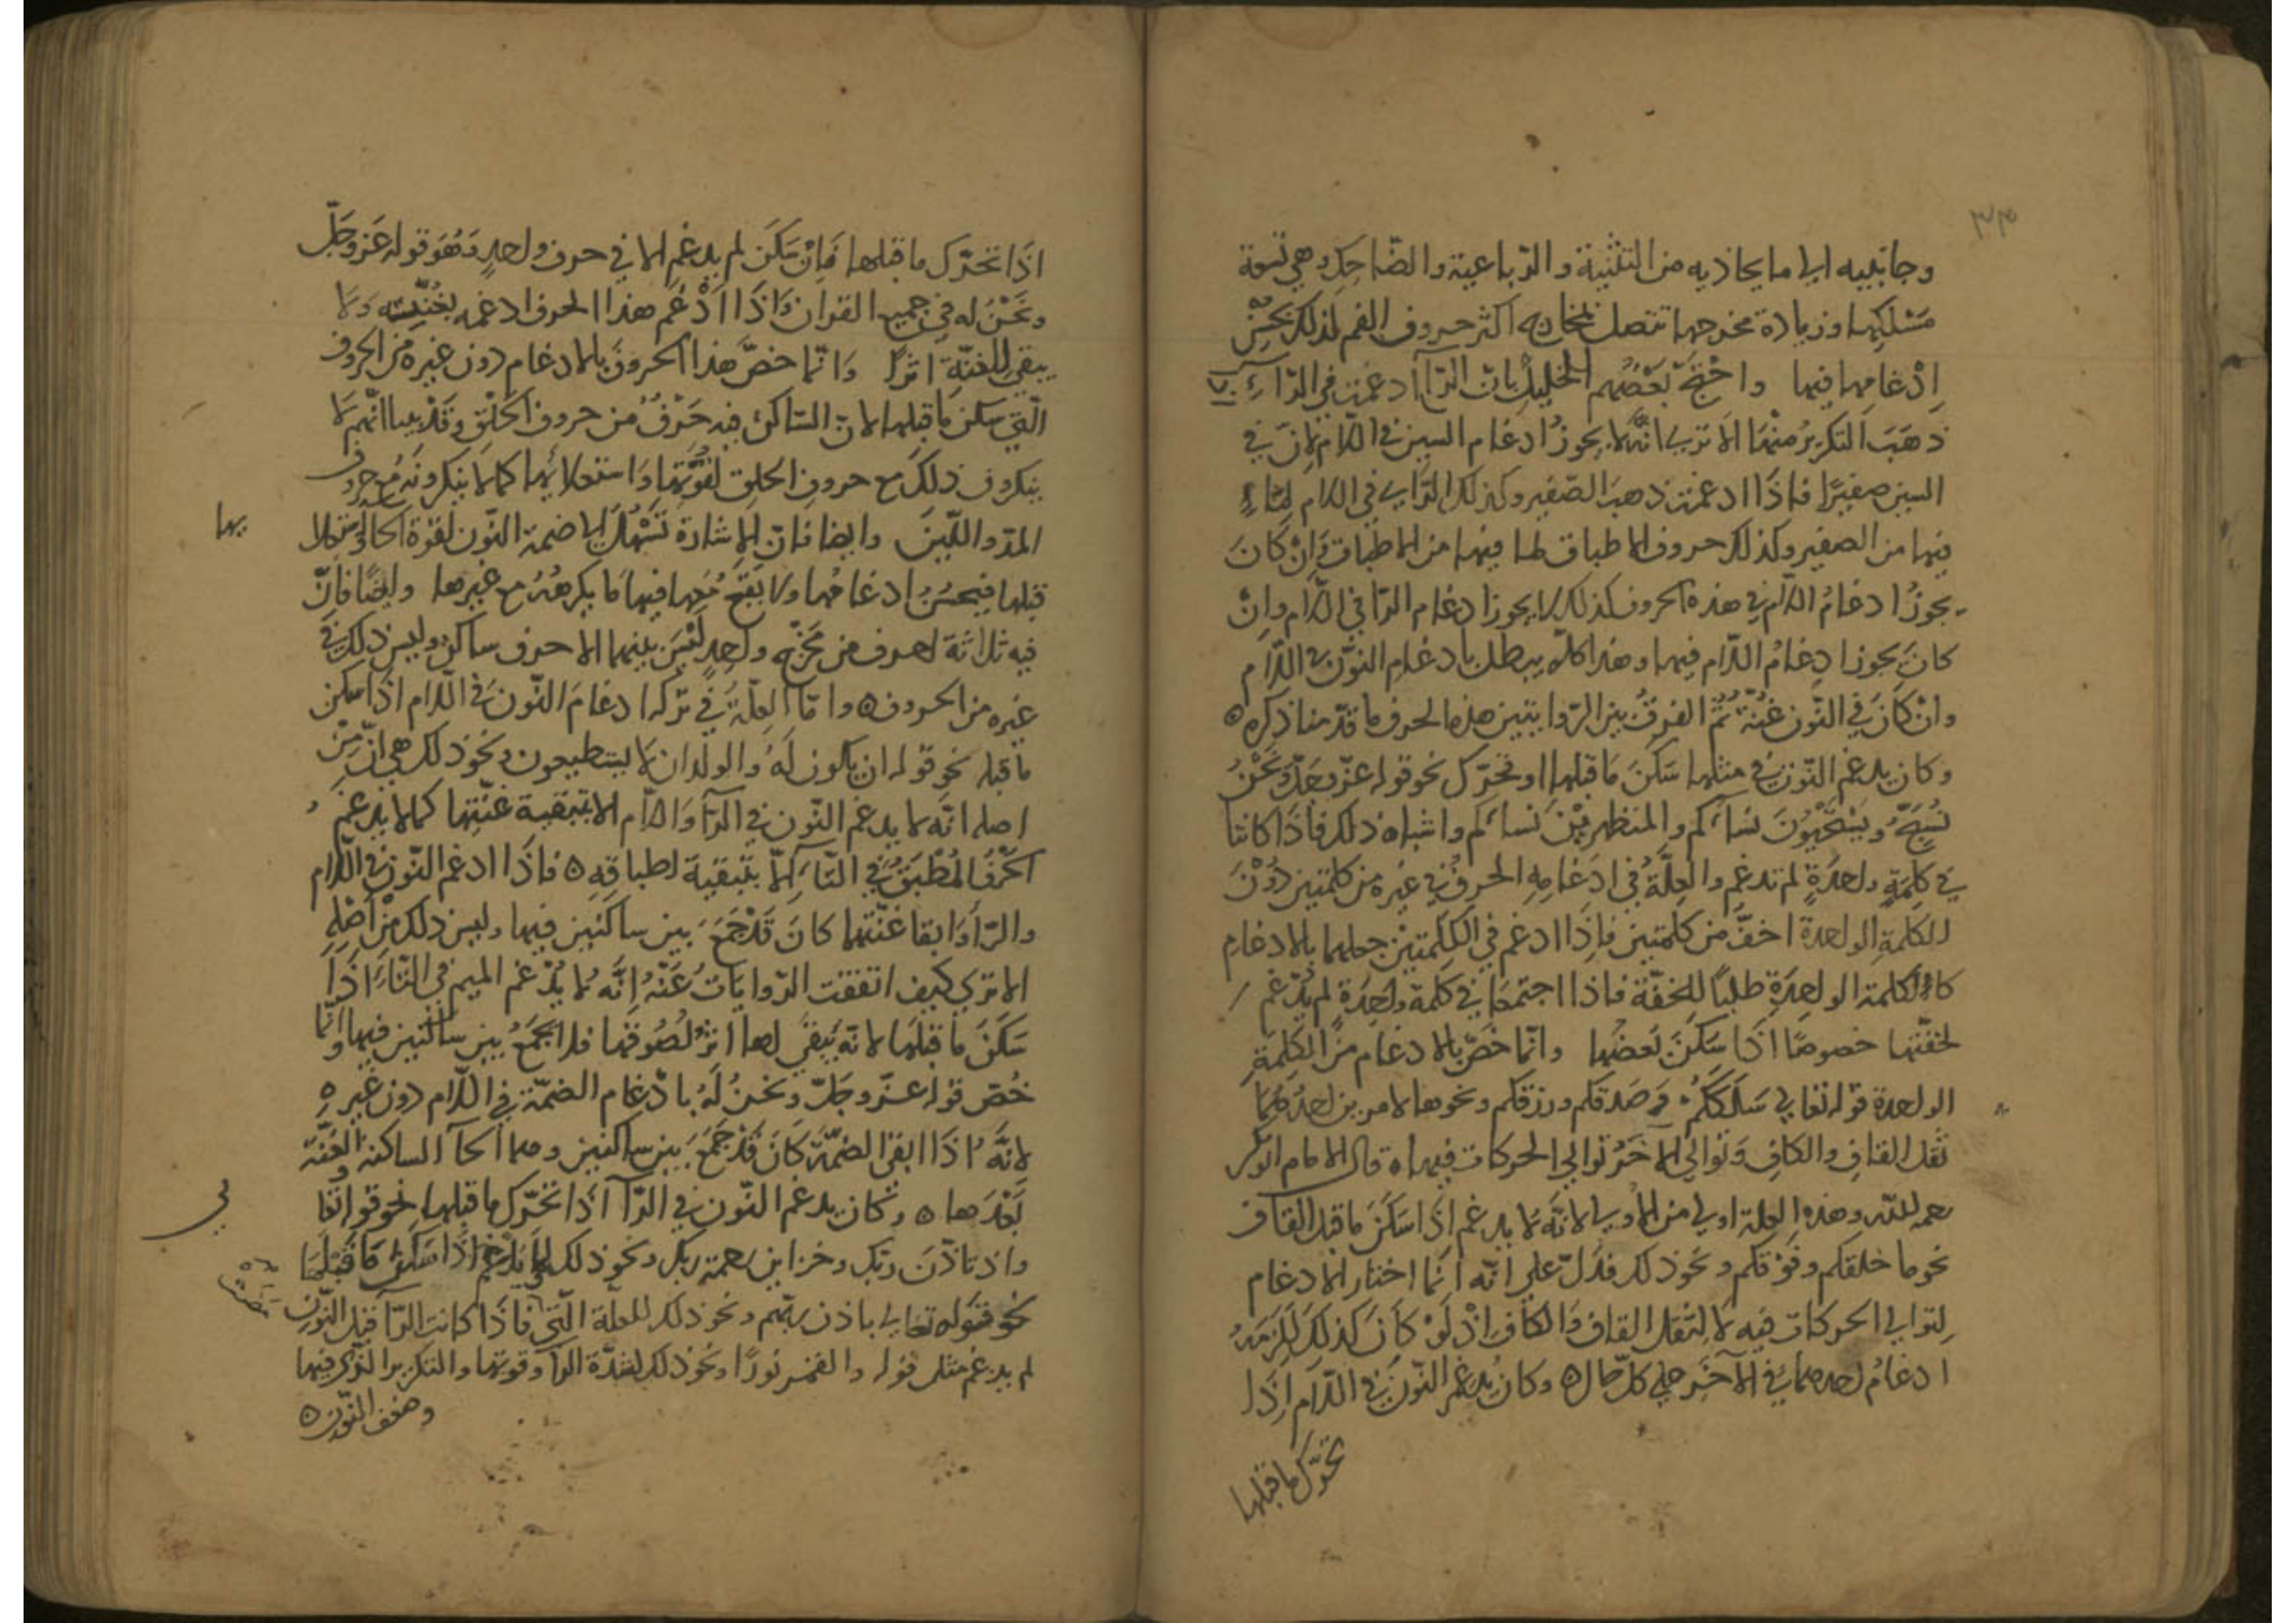 ٣٣
وجانبيه الى ما يحاذيه من الثنية والرباعية والضاحك وهي لسعة
مسلكها وزيادة مخرجها تتصل بمخارج اكثر حروف الفم لذلك يحسن
اِدْغامها فيها واحْتَجّ بَعْضُهم الخليل بان الرّاآ ادغمت في الرّاء
ذهَبَ التكريرُ منْها الا ترى انّه لا يجوزُ ادغام السين في اللّام لانّ في
السين صفيرًا فاذَا ادغمت ذهبَ الصّفير وكذلك الزاى في اللام لما
فيها من الصفير وكذلك حروف الاطباق لما فيها من الاطباق وَانْ كانَ
يجوزُ ادغامُ اللام في هذه الحروف كذلك لا يجوز ادغام الرّا في اللّام وانْ
كانَ يجوز ادِغامُ اللّام فيها وهذا كلّه يبطل بادغام النوّن في اللّام
وانْ كانَ في النّون غنّةٌ ثمّ الفرقُ بين الروايتين هذه الحروف ما قدّمنا ذكره
وكان يدغم النّون في مثلها سَكَنَ مَا قبلها او تحرّك نحو قوله عزّ وجلّ وَنَحْنُ
نُسَبِّحُ ويَسْتَحْيُونَ نسآءَكم واشباه ذلك فاذَا كانتا
في كلِمَةٍ واحدَةٍ لم تدغم والعِلَّةُ في ادغامِهِ الحرفُ في غيره من كلمتين دُوْنَ
الكلمةِ الواحدة اخفّ من كلمتين فاِذَا ادغم في الكلمتيْن جعلهما بالادغام
كالكلمة الواحدَةِ طلبًا للخفّة فاذا اجتمعَا في كلمة واحدَةٍ لم يدغم
لخفّتها خصوصًا اذَا سَكَنَ بَعضُها وانّما خَصّ بالادغام منَ الكلِمَةِ
الواحدة قوله تعالى سَلَككُمْ وَصَدقكم ورزقكم ونحوها لامرين احدهُما
ثقل القافِ والكافِ وَتوالى الآخَرُ توالي الحركات فيها قال الامام ابو بكر
رحمه الله وهذه العلة اولى من الاولى لانَّه لا يدغم اذَا سَكَنَ ما قبل القاف
نحو ما خلقكم وفَوْقكم ونحو ذلك فدلّ على انّه انّما اختار الادغام
لتوالى الحركات فيه لا لثقل القاف وَالكاف اذْ لَوْ كانَ كذلكَ للزمهُ
ادغامُ احدهما في الآخَر على كلّ حال وكان يُدغم النّونَ في اللّام اِذَا
تحرّك ما قبلها
اذَا تحرّك ما قبلها فَاِنْ سَكَنَ لم يدغم الا في حرف واحدٍ وَهُوَ قوله عَزّ وجَلّ
ونَحْنُ له في جميع القران وَاذَا ادْغم هذا الحرف ادغمه بغُنّته وَلا
يبقى للغنّة اثرًا وَانّما خصَّ هذا الحروفَ بالادغام دون غيره من الحروف
الّتي سكن ما قبلها لانّ السّاكن فيه حَرْفٌ من حروف الحلْق وقَدْ بينا انّهم لا
ينكرون ذلكَ مع حروفِ الحلق لقوّتها وَاستعلائها كما لا ينكرونَه مع حروف
المدّ واللّينَ وايضا فانّ الاشارة تَسْهُلُ الى ضمة النّون لقوة الحآ
بها
قبلها فيحسُنُ ادغامُها ولا يَقبح فيها ما يكرهُهُ مع غيرها وايضًا فانّ
فيه ثلاثة احرف من مَخرَجٍ واحِدٍ لَيْسَ بينهما الا حرف ساكن وليسَ ذلك في
غيره من الحروف وامّا العِلّة في تركه ادغامَ النّون في اللّام اذَا سكن
ما قبله نحو قوله ان يكون لَهُ والولدان لا يستطيعون ونحو ذلك هي انّ مِنْ
اصله انّه لا يدغم النّون في الرآ وَاللام الا بتبقية غنّتها كما لا يدغم
الحَرْفُ المُطْبَقُ في التّآءِ اِلّا بتبقيَة اطباقِهِ فاذَا ادغم النّون في اللّام
والرّا وَابقا غنّتها كانَ قَدْ جمَعَ بين ساكنين فيها وليس ذلك مِنْ اَصْلِهِ
الا ترى كيف اتفقت الرّوايَاتُ عَنْهُ اَنّه لا يُدْغم الميم في التّآءِ اذَا
سَكَنَ ما قبلها لانّه يبقي لها اثر لصُوقها فلا يجمَعُ بين ساكنين فيها وانّما
خُصّ قوله عزّ وجَلّ ونحنُ لَهُ بادْغام الضمّة في اللّام دون غيره
لانّهُ اذَا ابقى الضمّةَ كانَ قَدْ جَمَعَ بين ساكنين وهما الحآ الساكنة والغنّة
بَعْدَها وكان يدغم النّون في الرّآ اذَا تحرّك ما قبلها نحو قوله تعا
لى
واذ تاذّنَ ربّك وخزاين رحمة ربّك ونحو ذلك لم يدغم اذَا سكن مَا قبْلَهَا
نحو قوله تعالى باذن ربّهم ونحو ذلك للعلّة الّتي فَاذَا كانت الرّا قبل النّون
لم يدغم مثل قوله والقمَر نورًا ونحو ذلك لشدّة الرا وقوتها والتكرير الّذى فيها
وضعف النّون